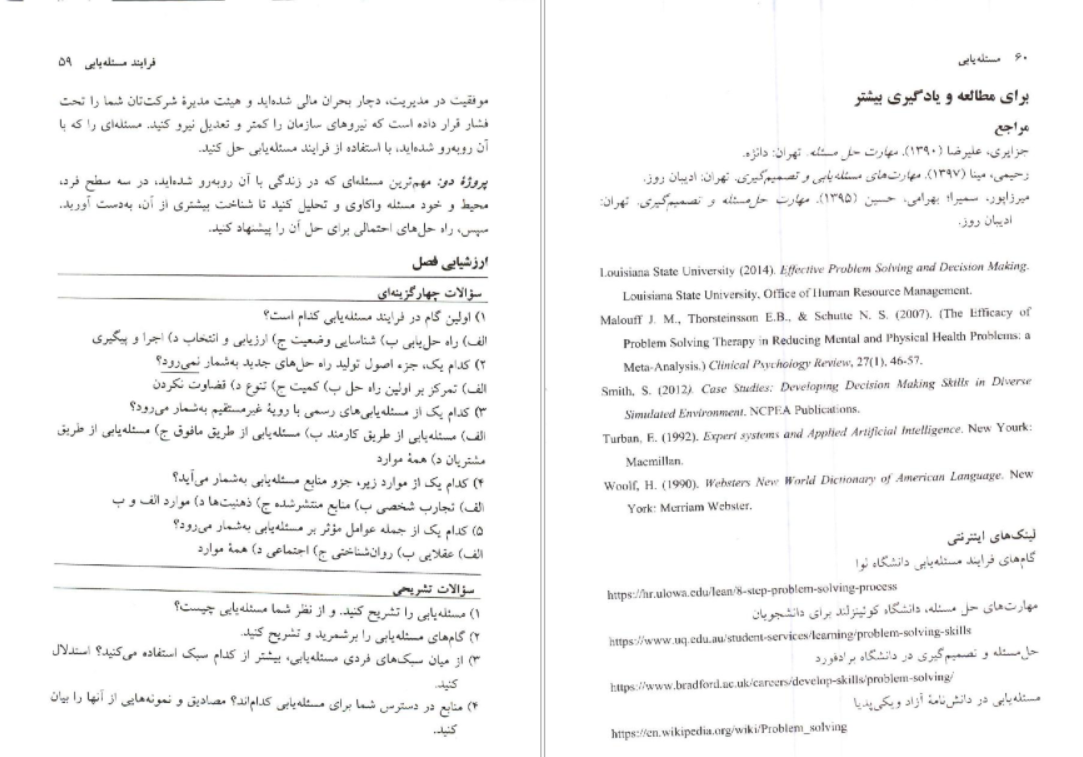 فرایند مسئله‌یابی ۵۹
موفقیت در مدیریت، دچار بحران مالی شده‌اید و هیئت مدیرهٔ شرکت‌تان شما را تحت
فشار قرار داده است که نیروهای سازمان را کمتر و تعدیل نیرو کنید. مسئله‌ای را که با
آن روبه‌رو شده‌اید، با استفاده از فرایند مسئله‌یابی حل کنید.
پروژهٔ دو: مهم‌ترین مسئله‌ای که در زندگی با آن روبه‌رو شده‌اید، در سه سطح فرد،
محیط و خود مسئله واکاوی و تحلیل کنید تا شناخت بیشتری از آن، به‌دست آورید.
سپس، راه حل‌های احتمالی برای حل آن را پیشنهاد کنید.
ارزشیابی فصل
سؤالات چهارگزینه‌ای
۱) اولین گام در فرایند مسئله‌یابی کدام است؟
الف) راه حل‌یابی ب) شناسایی وضعیت ج) ارزیابی و انتخاب د) اجرا و پیگیری
۲) کدام یک، جزء اصول تولید راه حل‌های جدید به‌شمار نمی‌رود؟
الف) تمرکز بر اولین راه حل ب) کمیت ج) تنوع د) قضاوت نکردن
۳) کدام یک از مسئله‌یابی‌های رسمی با رویهٔ غیرمستقیم به‌شمار می‌رود؟
الف) مسئله‌یابی از طریق کارمند ب) مسئله‌یابی از طریق مافوق ج) مسئله‌یابی از طریق
مشتریان د) همهٔ موارد
۴) کدام یک از موارد زیر، جزو منابع مسئله‌یابی به‌شمار می‌آید؟
الف) تجارب شخصی ب) منابع منتشرشده ج) ذهنیت‌ها د) موارد الف و ب
۵) کدام یک از جمله عوامل مؤثر بر مسئله‌یابی به‌شمار می‌رود؟
الف) عقلایی ب) روان‌شناختی ج) اجتماعی د) همهٔ موارد
سؤالات تشریحی
۱) مسئله‌یابی را تشریح کنید. و از نظر شما مسئله‌یابی چیست؟
۲) گام‌های مسئله‌یابی را برشمرید و تشریح کنید.
۳) از میان سبک‌های فردی مسئله‌یابی، بیشتر از کدام سبک استفاده می‌کنید؟ استدلال
کنید.
۴) منابع در دسترس شما برای مسئله‌یابی کدام‌اند؟ مصادیق و نمونه‌هایی از آنها را بیان
کنید.
۶۰ مسئله‌یابی
برای مطالعه و یادگیری بیشتر
مراجع
جزایری، علیرضا (۱۳۹۰). مهارت حل مسئله. تهران: دانژه.
رحیمی، مینا (۱۳۹۷). مهارت‌های مسئله‌یابی و تصمیم‌گیری. تهران: ادیبان روز.
میرزاپور، سمیرا؛ بهرامی، حسین (۱۳۹۵). مهارت حل‌مسئله و تصمیم‌گیری. تهران:
ادیبان روز.
Louisiana State University (2014). Effective Problem Solving and Decision Making.
Louisiana State University, Office of Human Resource Management.
Malouff J. M., Thorsteinsson E.B., & Schutte N. S. (2007). (The Efficacy of
Problem Solving Therapy in Reducing Mental and Physical Health Problems: a
Meta-Analysis.) Clinical Psychology Review, 27(1), 46-57.
Smith, S. (2012). Case Studies: Developing Decision Making Skills in Diverse
Simulated Environment. NCPEA Publications.
Turban, E. (1992). Expert systems and Applied Artificial Intelligence. New Yourk:
Macmillan.
Woolf, H. (1990). Websters New World Dictionary of American Language. New
York: Merriam Webster.
لینک‌های اینترنتی
گام‌های فرایند مسئله‌یابی دانشگاه لوا
https://hr.ulowa.edu/lean/8-step-problem-solving-process
مهارت‌های حل مسئله، دانشگاه کوئینزلند برای دانشجویان
https://www.uq.edu.au/student-services/learning/problem-solving-skills
حل‌مسئله و تصمیم‌گیری در دانشگاه برادفورد
https://www.bradford.ac.uk/careers/develop-skills/problem-solving/
مسئله‌یابی در دانش‌نامهٔ آزاد ویکی‌پدیا
https://en.wikipedia.org/wiki/Problem_solving